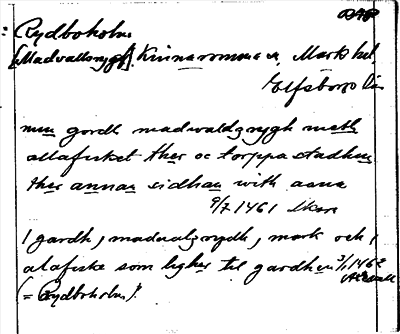 DAP
Rydboholm
[Madvallsrygg], Kinnarumma sn, Marks hd
Elfsborgs län
min gordh madwaldzrygh meth
allafisket ther oc torppastadhen
ther annan sidhan with aana
9/7 1461
1 gardh, madvalzrydh, mark och 1
alafiske som ligher til gardhen 3/1 1462
(= Rydboholm).